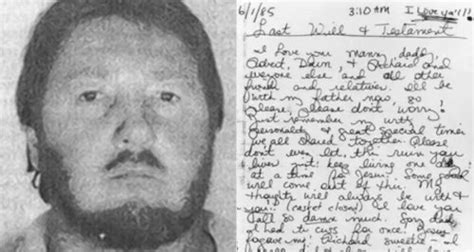 6/1/85 3:10 AM I Love ya'll!
Last Will & Testament
I Love you mammy, daddy,
Robert, Dawn, & Richard and
everyone else and all other
friends and relatives. I'll be
with my father now so
Please, please don't worry!
Just remember my witty
Personality & great special times
we all shared together Please
don't ever let this ruin your
lives just keep living one day
at a time for Jesus. Some good
will come out of this. My
thoughts will always be with
you! I love you
all so damn much. Sorry dad,
I had to cuss for once! Jesus
forgive me. Richard sweetie - I